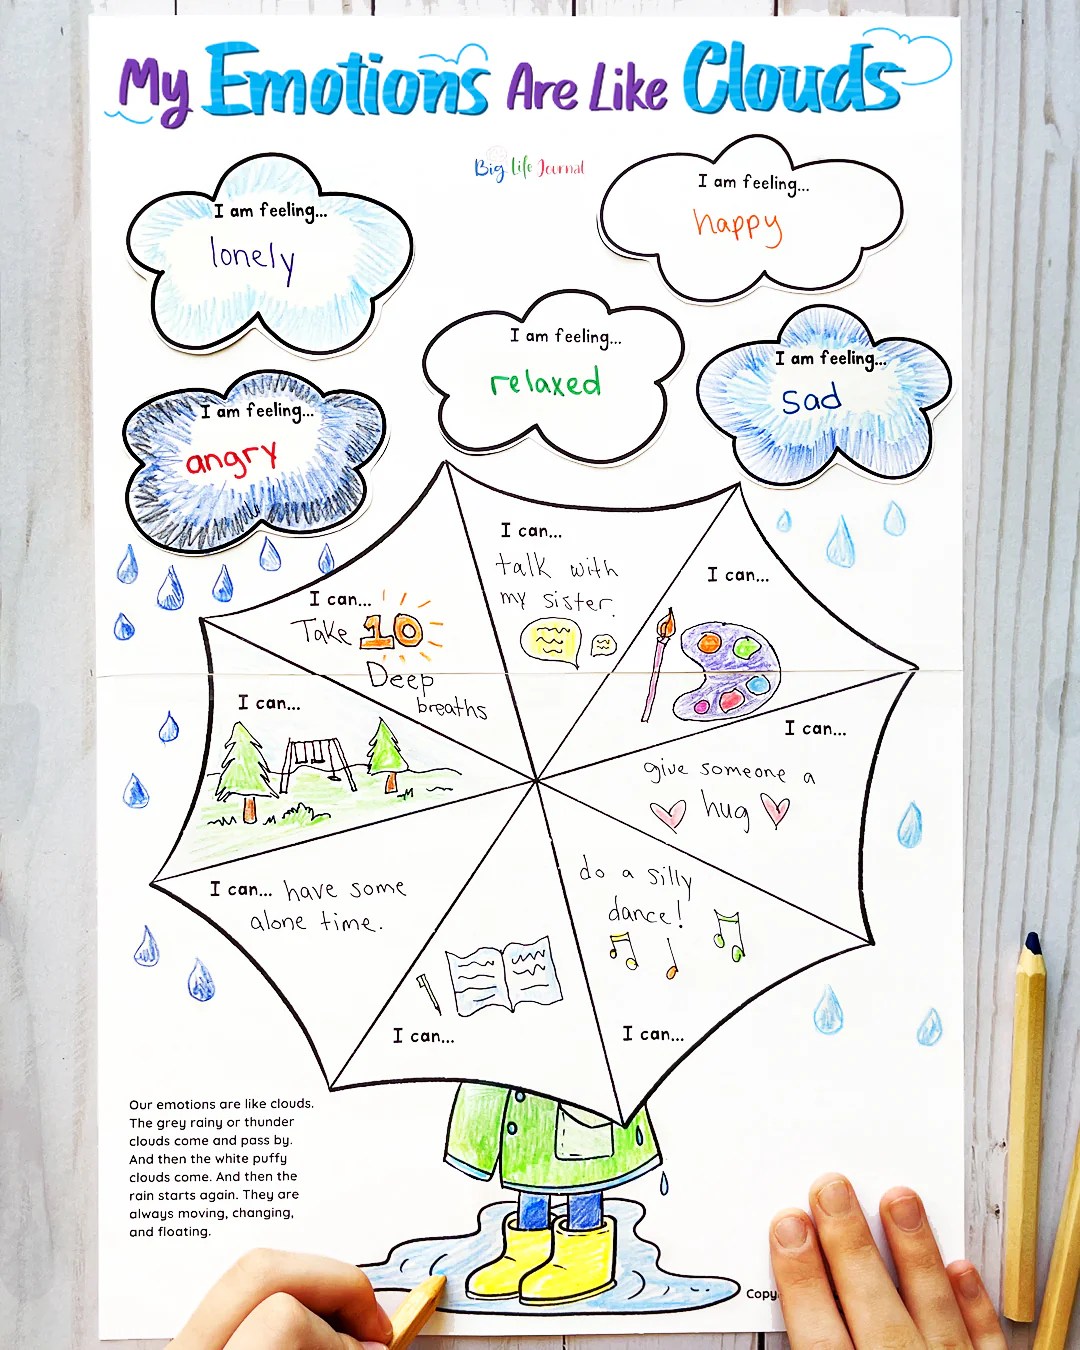 My Emotions Are Like Clouds
Big Life Journal
I am feeling...
lonely
I am feeling...
happy
I am feeling...
relaxed
I am feeling...
sad
I am feeling...
angry
I can...
talk with
my sister.
I can...
I can...
Take 10
Deep
breaths
I can...
I can...
give someone a
hug
I can... have some
alone time.
do a silly
dance!
I can...
I can...
Our emotions are like clouds.
The grey rainy or thunder
clouds come and pass by.
And then the white puffy
clouds come. And then the
rain starts again. They are
always moving, changing,
and floating.